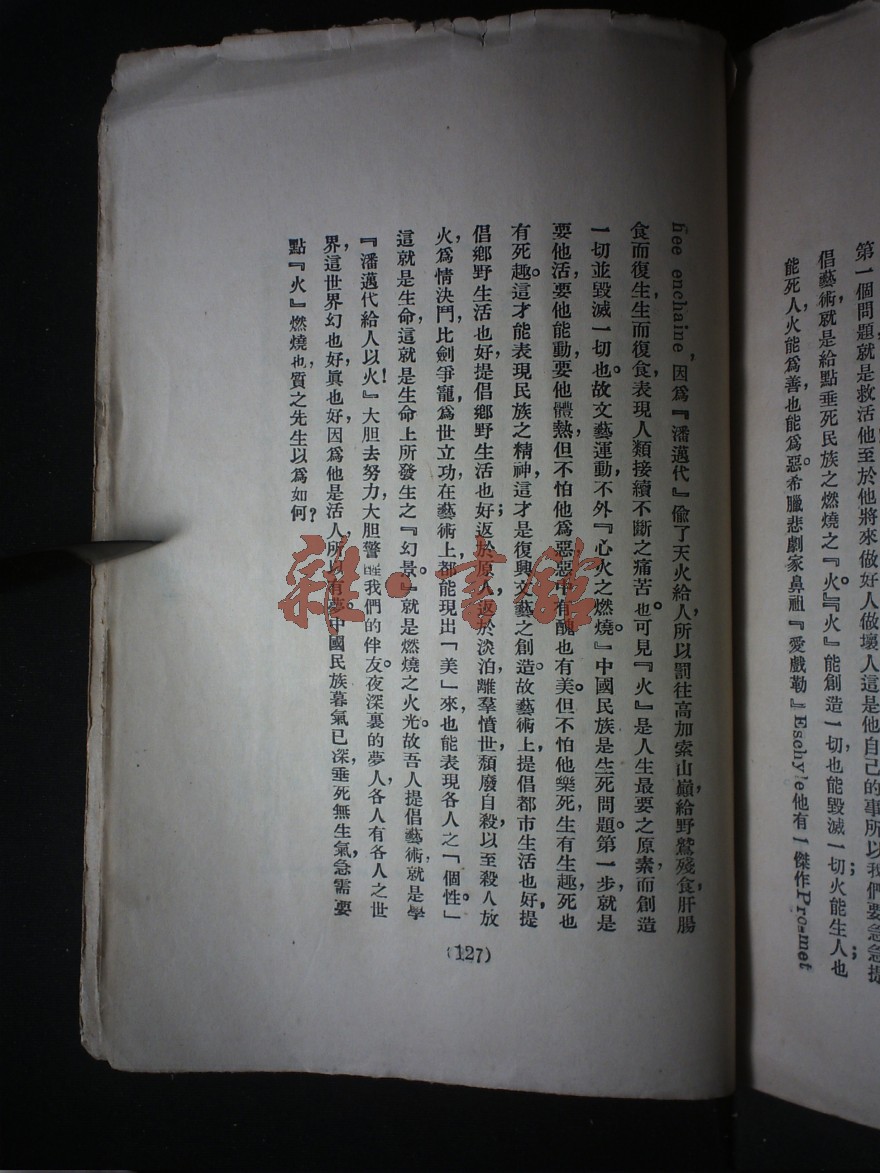 第一個問題就是救活他至於他將來做好人做壞人這是他自己的事所以我們要急急提
倡藝術，就是給點垂死民族之燃燒之『火』。『火』能創造一切，也能毀滅一切；火能生人也
能死人，火能爲善也能爲惡。希臘悲劇家鼻祖『愛戲勒』Eschyle他有一傑作Pro-met
hee enchaine，因爲『潘邁代』偸了天火給人，所以罰往高加索山巔，給野鷲殘食肝腸，
食而復生，生而復食，表現人類接續不斷之痛苦也。可見『火』是人生最要之原素，而創造
一切並毀滅一切也。故文藝運動，不外『心火之燃燒』中國民族是生死問題。第一步，就是
要他活，要他能動，要他體熱，但不怕他爲惡，惡中有醜也有美。但不怕他樂死，生有生趣，死也
有死趣。這才能表現民族之精神，這才是復興文藝之創造。故藝術上，提倡都市生活也好，提
倡鄉野生活也好，提倡鄉野生活也好；返於原人，返於淡泊，離羣憤世，頹廢自殺，以至殺人放
火，爲情決鬥，比劍爭寵，爲世立功，在藝術上都能現出「美」來，也能表現各人之「個性」。
這就是生命，這就是生命上所發生之『幻景』。就是燃燒之火光。故吾人提倡藝術，就是學
『潘邁代給人以火』！大胆去努力，大胆警醒我們的伴友。夜深裏的夢人，各人有各人之世
界，這世界幻也好，眞也好，因爲他是活人，所以有夢。中國民族暮氣已深，垂死無生氣，急需要
點『火』燃燒也，質之先生以爲如何？
(127)
雜·書館